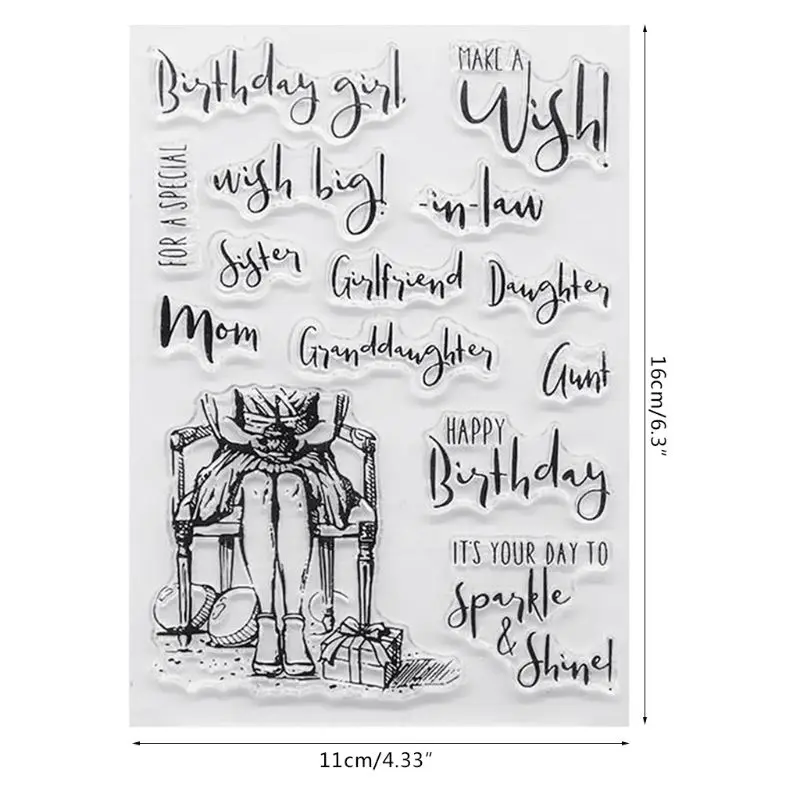 Birthday girl
MAKE A
Wish!
FOR A SPECIAL
wish big!
-in-law
Sister
Girlfriend
Daughter
Mom
Granddaughter
Aunt
HAPPY
Birthday
IT'S YOUR DAY TO
Sparkle
&
Shine!
16cm/6.3"
11cm/4.33"